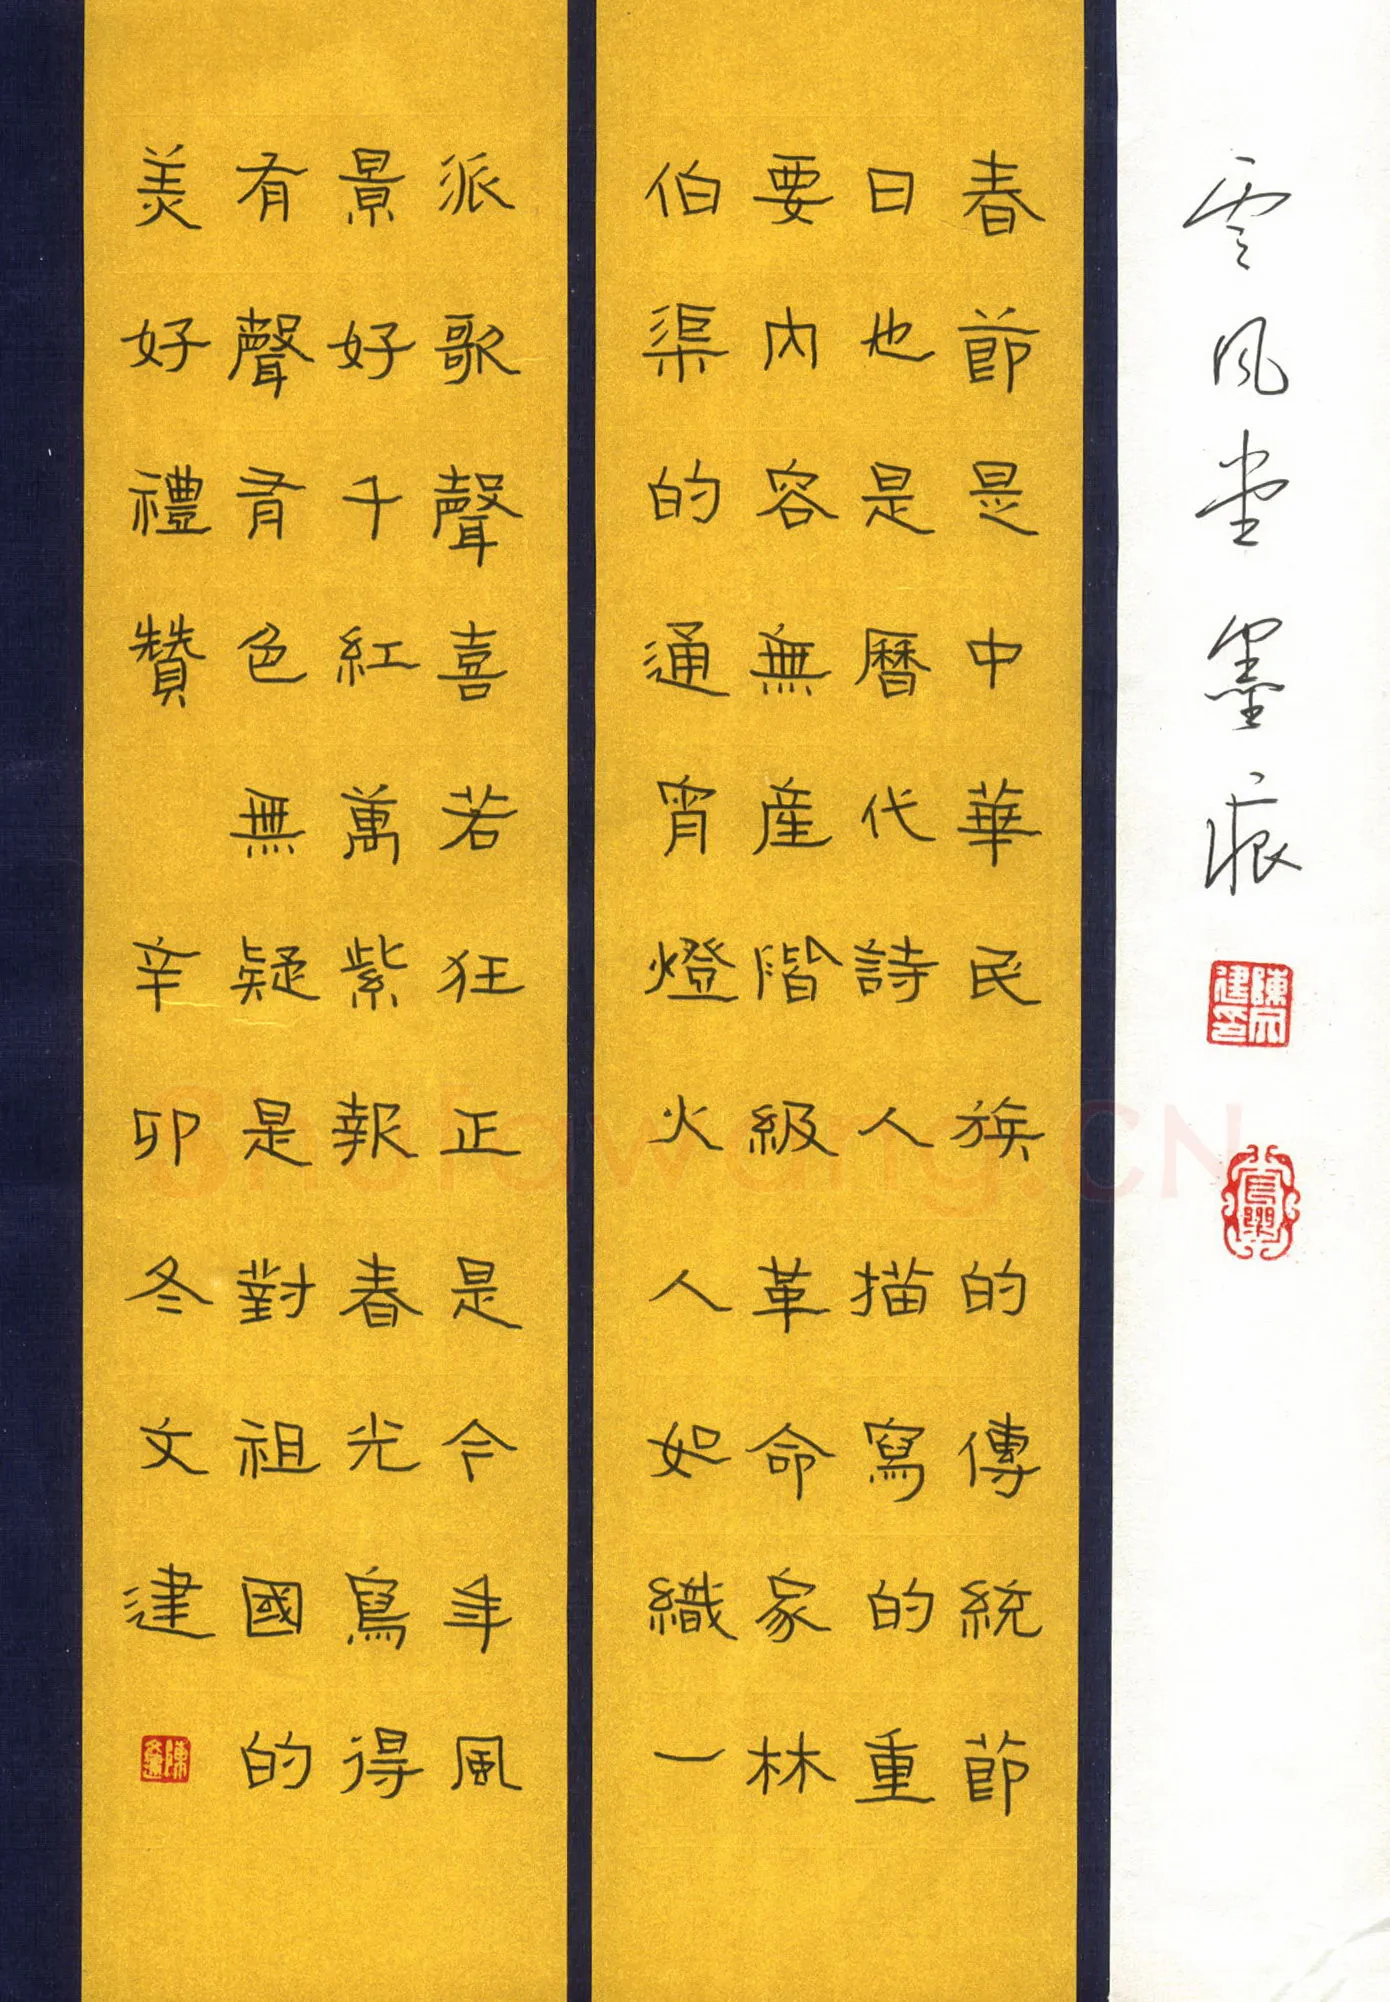 雲风堂墨痕
陳文建印
春節是中華民族的傳統節
日也是曆代詩人描寫的重
要內容無產階級革命家林
伯渠的通宵燈火人如織一
派歌聲喜若狂正是今年風
景好千紅萬紫報春光寫得
有聲有色無疑是對祖國的
美好禮贊 辛卯冬文建
陳文建
Shufawang.CN